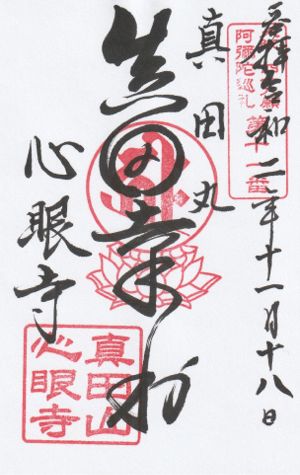 奉拝 令和二年十一月十八日
阿彌陀巡礼
真田丸
真田幸村
心眼寺
真田山
心眼寺